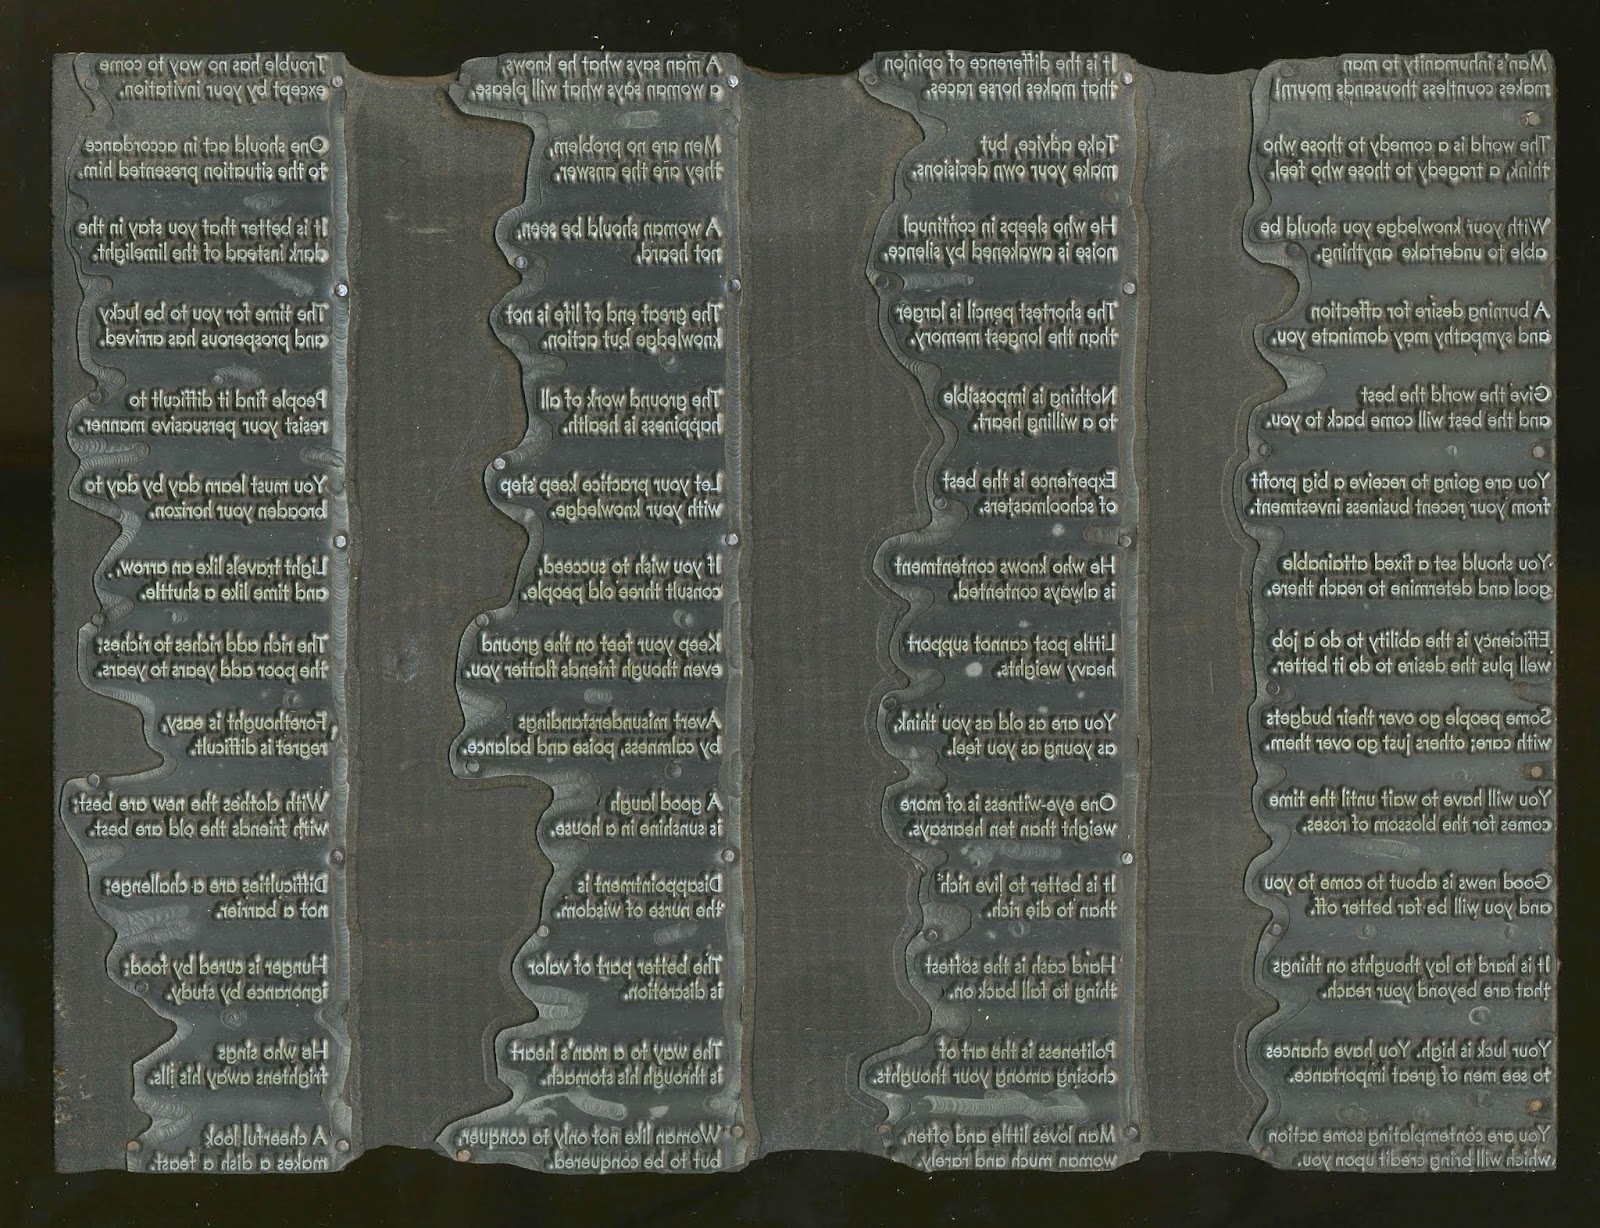 Man's inhumanity to man
makes countless thousands mourn!
The world is a comedy to those who
think, a tragedy to those who feel.
With your knowledge you should be
able to undertake anything.
A burning desire for affection
and sympathy may dominate you.
Give the world the best
and the best will come back to you.
You are going to receive a big profit
from your recent business investment.
You should set a fixed attainable
goal and determine to reach there.
Efficiency is the ability to do a job
well plus the desire to do it better.
Some people go over their budgets
with care; others just go over them.
You will have to wait until the time
comes for the blossom of roses.
Good news is about to come to you
and you will be far better off.
It is hard to lay thoughts on things
that are beyond your reach.
Your luck is high. You have chances
to see men of great importance.
You are contemplating some action
which will bring credit upon you.
It is the difference of opinion
that makes horse races.
Take advice, but
make your own decisions.
He who sleeps in continual
noise is awakened by silence.
The shortest pencil is larger
than the longest memory.
Nothing is impossible
to a willing heart.
Experience is the best
of schoolmasters.
He who knows contentment
is always contented.
Little post cannot support
heavy weights.
You are as old as you think,
as young as you feel.
One eye-witness is of more
weight than ten hearsays.
It is better to live rich
than to die rich.
Hard cash is the softest
thing to fall back on.
Politeness is the art of
chosing among your thoughts.
Man loves little and often,
woman much and rarely.
A man says what he knows,
a woman says what will please.
Men are no problem,
they are the answer.
A woman should be seen,
not heard.
The great end of life is not
knowledge but action.
The ground work of all
happiness is health.
Let your practice keep step
with your knowledge.
If you wish to succeed,
consult three old people.
Keep your feet on the ground
even though friends flatter you.
Avert misunderstandings
by calmness, poise and balance.
A good laugh
is sunshine in a house.
Disappointment is
the nurse of wisdom.
The better part of valor
is discretion.
The way to a man's heart
is through his stomach.
Woman like not only to conquer,
but to be conquered.
Trouble has no way to come
except by your invitation.
One should act in accordance
to the situation presented him.
It is better that you stay in the
dark instead of the limelight.
The time for you to be lucky
and prosperous has arrived.
People find it difficult to
resist your persuasive manner.
You must learn day by day to
broaden your horizon.
Light travels like an arrow,
and time like a shuttle.
The rich add riches to riches;
the poor add years to years.
Forethought is easy,
regret is difficult.
With clothes the new are best;
with friends the old are best.
Difficulties are a challenge;
not a barrier.
Hunger is cured by food;
ignorance by study.
He who sings
frightens away his ills.
A cheerful look
makes a dish a feast.